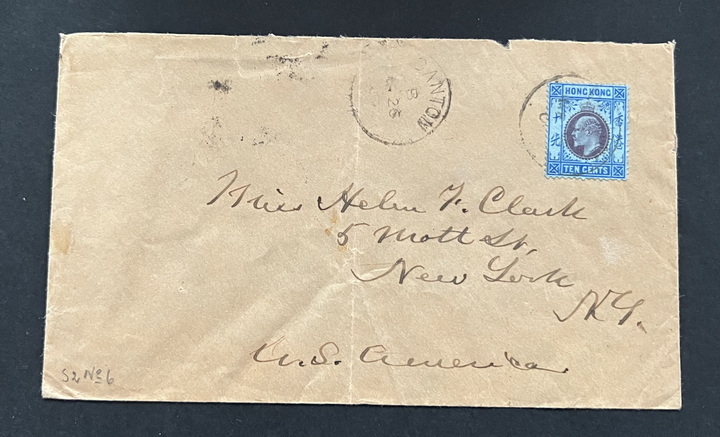 CANTON
B
26
HONG KONG
香港
TEN CENTS
Miss Helen F. Clark
5 Mott St,
New York
N.Y.
U.S. America
S2 No 6